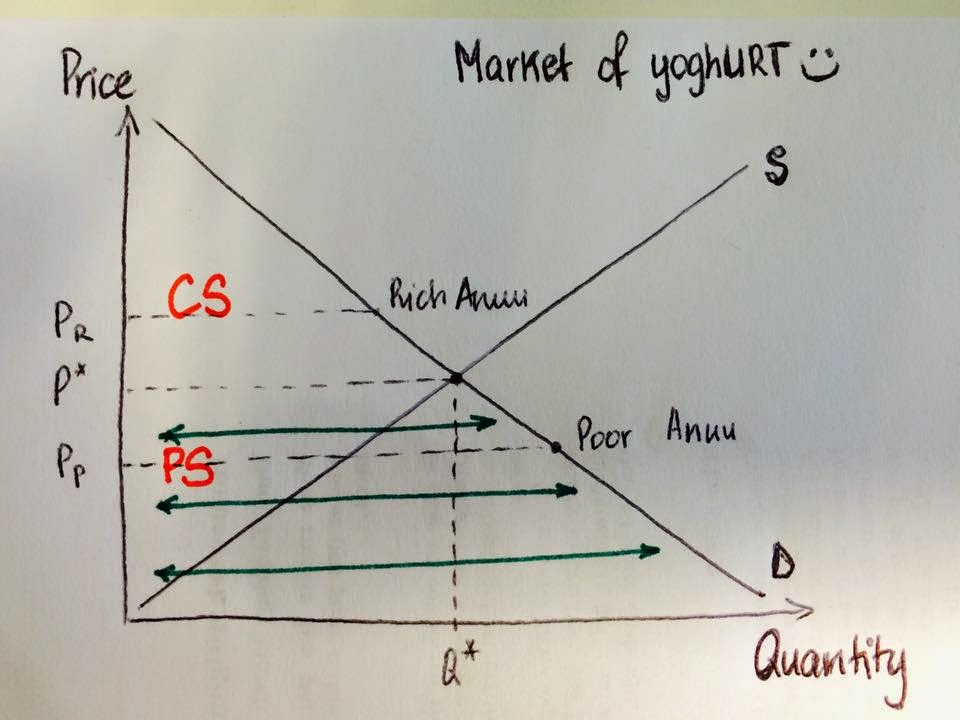 Market of yoghURT
Price
S
CS
Rich Anuu
PR
P*
Poor Anuu
PP
PS
D
Q*
Quantity